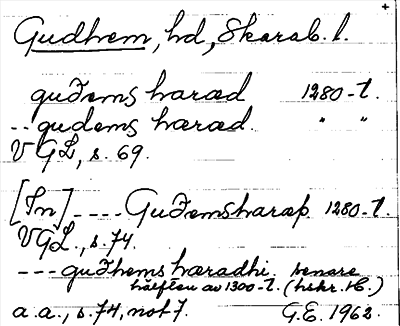 Gudhem, hd, Skarab. l.
guðems hæræd 1280-t.
-- gudems hæræd. " "
VGL, s. 69.
[In] ---- Guðemshæraþ. 1280-t.
VGL., s. 74.
--- guðhems hæradhi. senare
hälften av 1300-t. (hskr. H.)
a.a., s. 74, not 7. G.E. 1962.